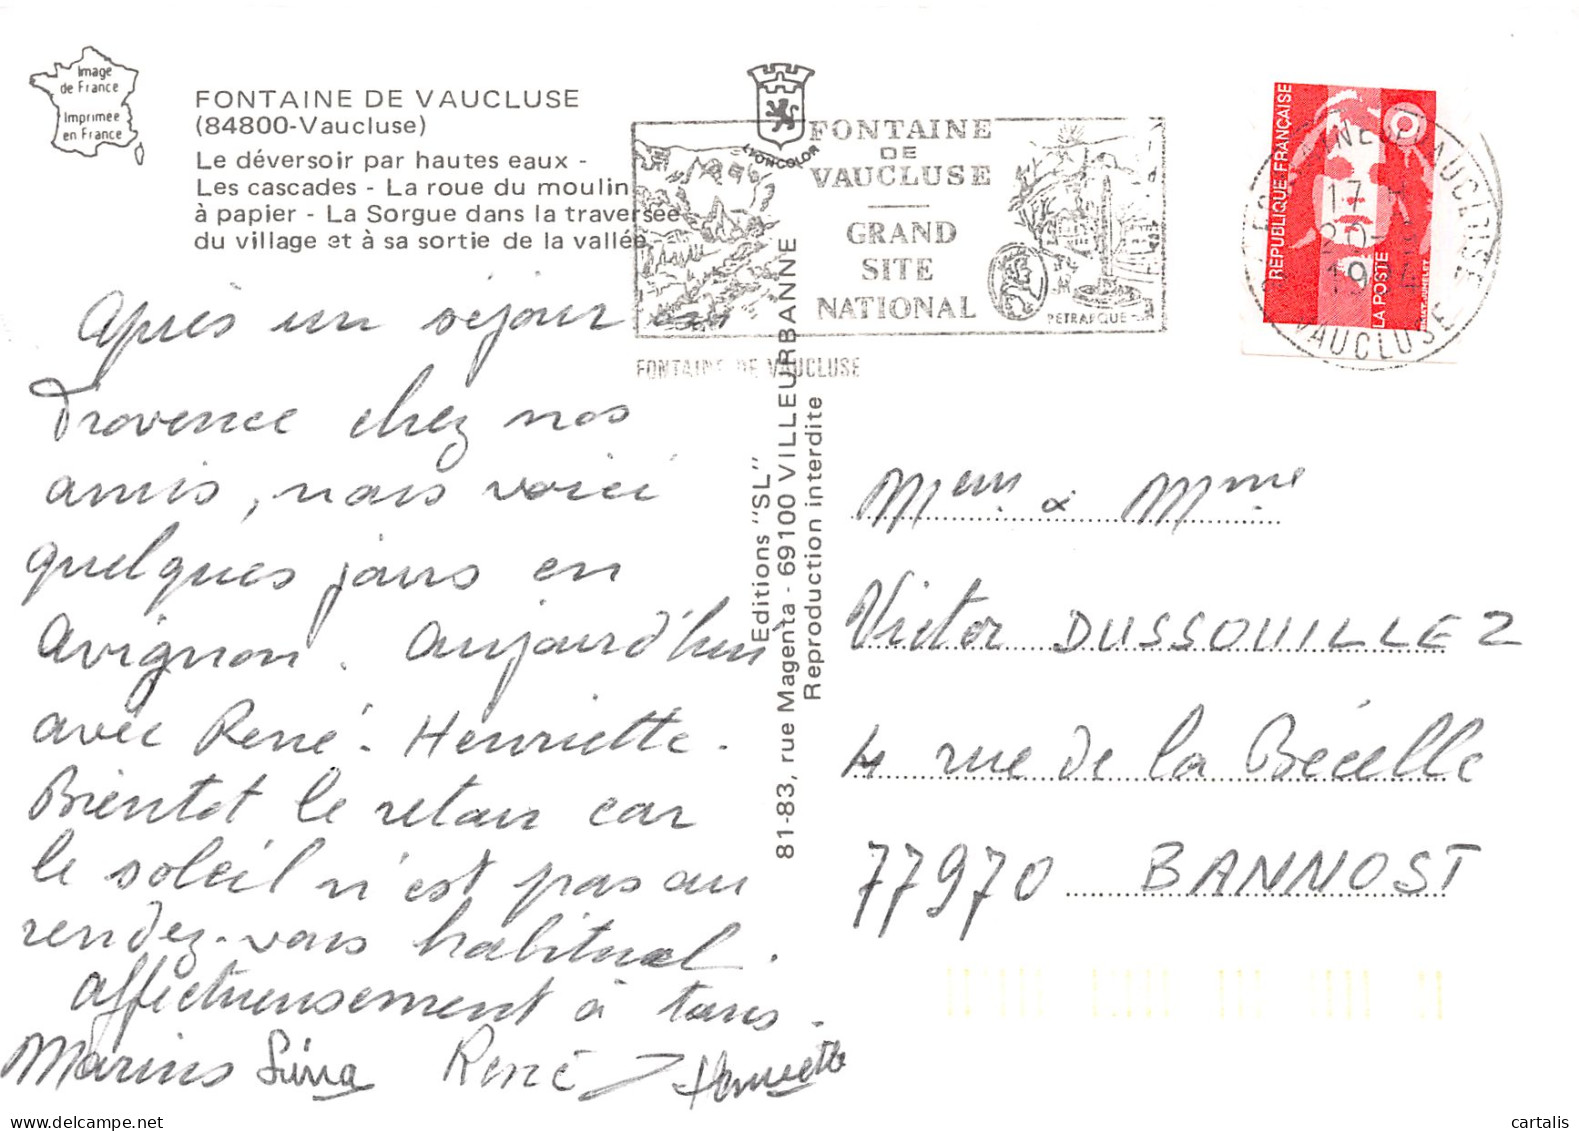 Image
de France
Imprimée
en France
FONTAINE DE VAUCLUSE
(84800-Vaucluse)
Le déversoir par hautes eaux -
Les cascades - La roue du moulin
à papier - La Sorgue dans la traversée
du village et à sa sortie de la vallée.
LYONCOLOR
FONTAINE
DE
VAUCLUSE
GRAND
SITE
NATIONAL
PETRARQUE
FONTAINE DE VAUCLUSE
RÉPUBLIQUE FRANÇAISE
LA POSTE
17 H
VAUCLUSE
Après un séjour en
Provence chez nos
amis, nous voici
quelques jours en
Avignon. Aujourd'hui
avec René - Henriette.
Bientot le retour car
le soleil n'est pas au
rendez-vous habituel.
Affectueusement à tous.
Marius René Henriette
Editions "SL"
81-83, rue Magenta - 69100 VILLEURBANNE
Reproduction interdite
& Mme
Victor DUSSOUILLEZ
4 rue de la Bécelle
77970 BANNOST
cartalis | delcampe.net